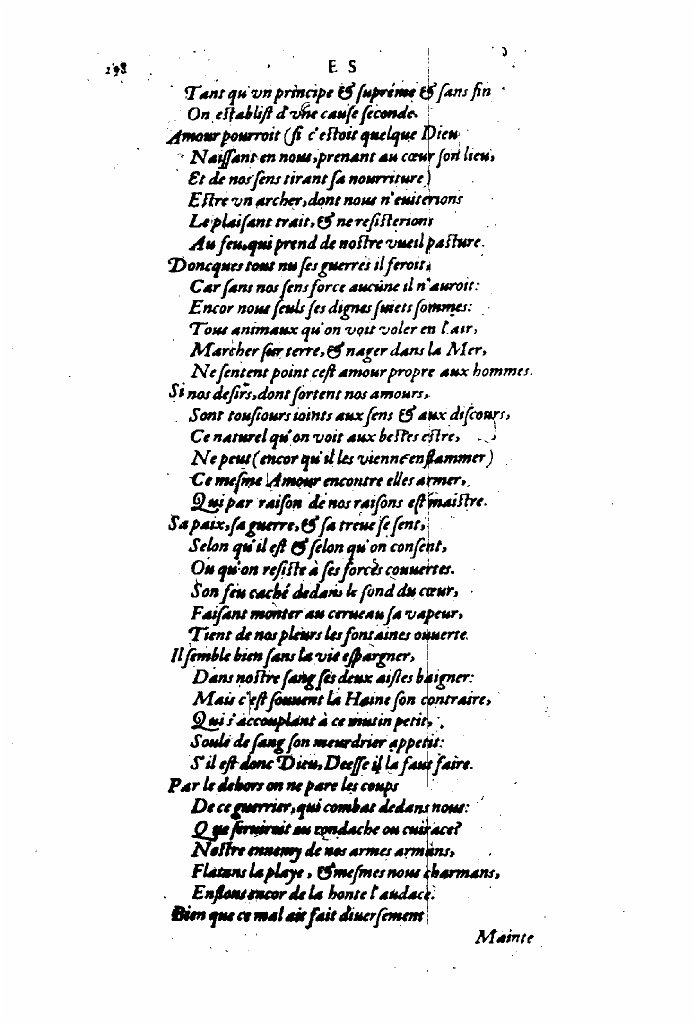 198 E S
Tant qu'vn principe & ſupréme & ſans fin
On eſtabliſt d'vne cauſe ſeconde.
Amour pourroit (ſi c'eſtoit quelque Dieu
Naiſſant en nous, prenant au cœur ſon lieu,
Et de nos ſens tirant ſa nourriture)
Eſtre vn archer, dont nous n'euiterions
Le plaiſant trait, & ne reſiſterions
Au feu, qui prend de noſtre vueil paſture.
Doncques tout nu ſes guerres il feroit,
Car ſans nos ſens force aucune il n'auroit:
Encor nous ſeuls ſes dignes ſuiets ſommes:
Tous animaux qu'on voit voler en l'air,
Marcher ſur terre, & nager dans la Mer,
Ne ſentent point ceſt amour propre aux hommes.
Si nos deſirs, dont ſortent nos amours,
Sont touſiours ioints aux ſens & aux diſcours,
Ce naturel qu'on voit aux beſtes eſtre,
Ne peut (encor qu'il les vienne enflammer)
Ce meſme Amour encontre elles armer,
Qui par raiſon de nos raiſons eſt maiſtre.
Sa paix, ſa guerre, & ſa treue ſe ſent,
Selon qu'il eſt & ſelon qu'on conſent,
Ou qu'on reſiſte à ſes forces couuertes.
Son feu caché dedans le fond du cœur,
Faiſant monter au cerueau ſa vapeur,
Tient de nos pleurs les fontaines ouuerte.
Il ſemble bien ſans la vie eſpargner,
Dans noſtre ſang ſes deux aiſles baigner:
Mais c'eſt ſouuent la Haine ſon contraire,
Qui s'accouplant à ce mutin petit,
Soule de ſang ſon meurdrier appetit:
S'il eſt donc Dieu, Deeſſe il la faut faire.
Par le dehors on ne pare les coups
De ce guerrier, qui combat dedans nous:
Que ſeruiroit au rondache ou cuirace?
Noſtre ennemy de nos armes armans,
Flatans la playe, & meſmes nous charmans,
Enflons encor de la honte l'audace.
Bien que ce mal ait fait diuerſement
Mainte